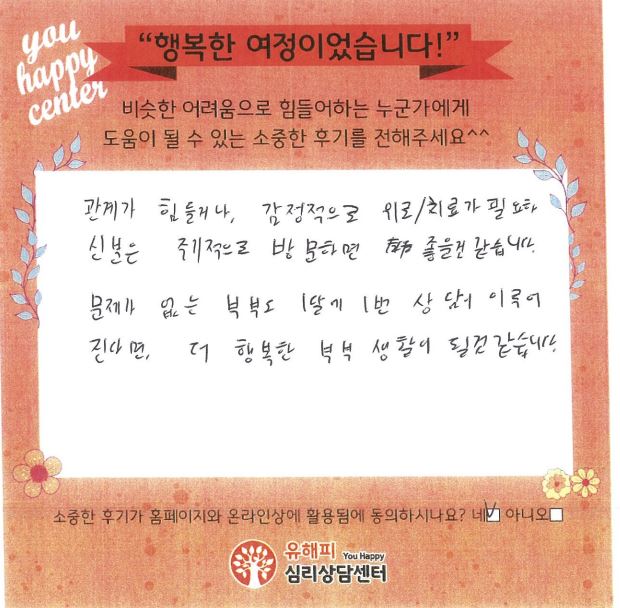 you
happy
center
“행복한 여정이었습니다!”
비슷한 어려움으로 힘들어하는 누군가에게
도움이 될 수 있는 소중한 후기를 전해주세요^^
관계가 힘들거나, 감정적으로 위로/치료가 필요하
신분은 주기적으로 방문하면 좋을것 같습니다.
문제가 없는 부부도 1달에 1번 상담이 이루어
진다면, 더 행복한 부부 생활이 될것 같습니다.
소중한 후기가 홈페이지와 온라인상에 활용됨에 동의하시나요? 네☑ 아니오☐
유해피 You Happy
심리상담센터